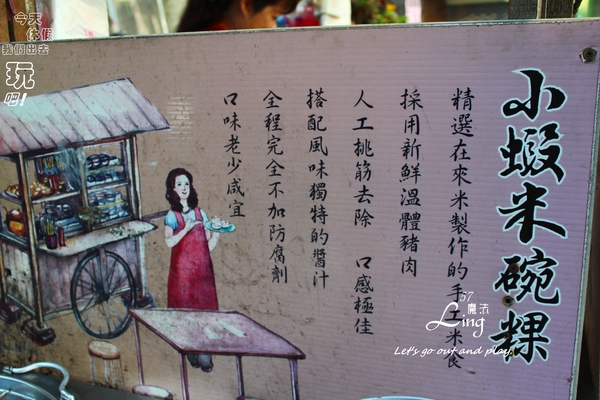 今天
休假
我們出去
玩
吧!
小蝦米碗粿
精選在來米製作的手工米食
採用新鮮溫體豬肉
人工挑筋去除 口感極佳
搭配風味獨特的醬汁
全程完全不加防腐劑
口味老少咸宜
57
魔法
Ling
Let's go out and play!